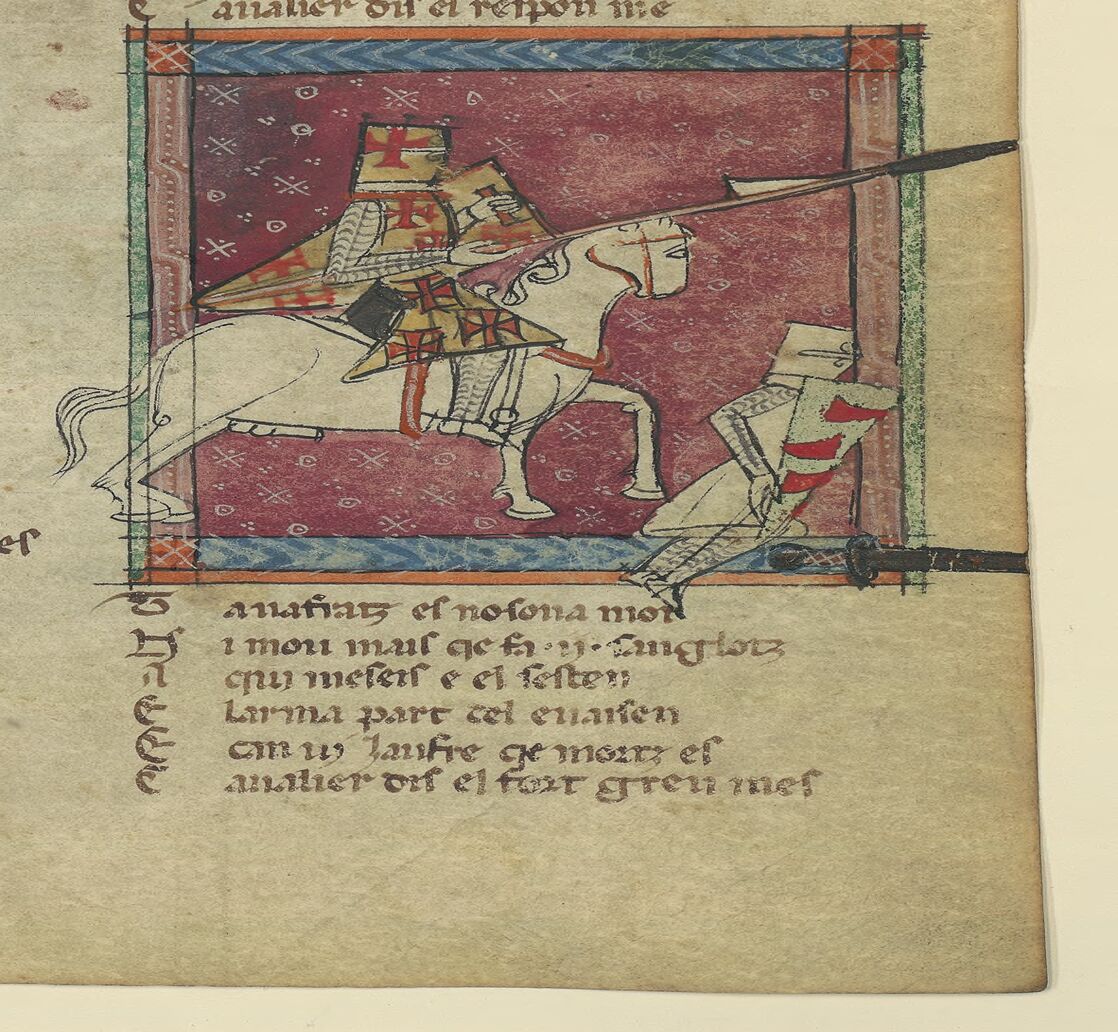 C aualier dis el respon me
es
G anafratz es no sona mot
N i mou mais qe fa .ii. sanglotz
A qui meseis e el sesten
E larma part del euaisen
E can ui Jaufre qe mortz es
C aualier dis el fort greu mes